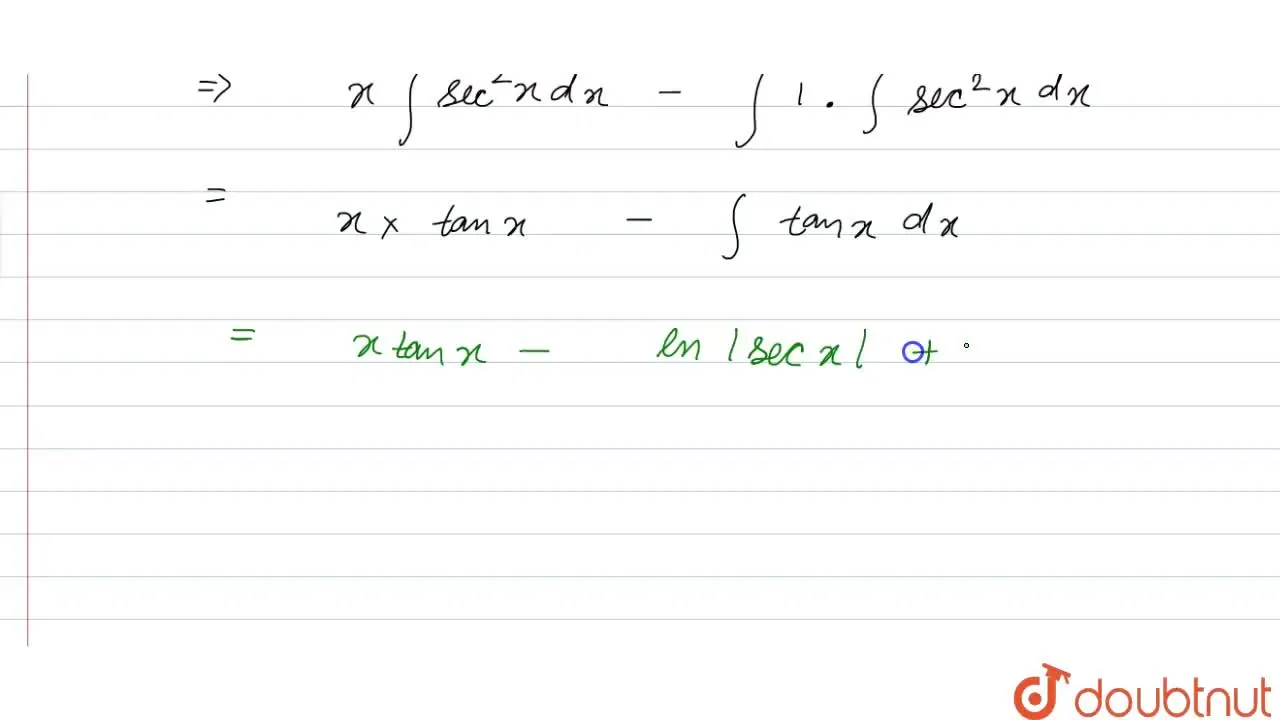 ⇒ x ∫ sec²x dx − ∫ 1 . ∫ sec²x dx
= x × tan x − ∫ tan x dx
= x tan x − ln |sec x| +
doubtnut